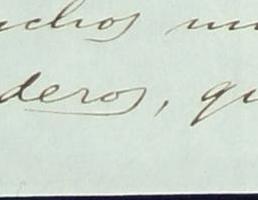 uchos mu
deros, qu